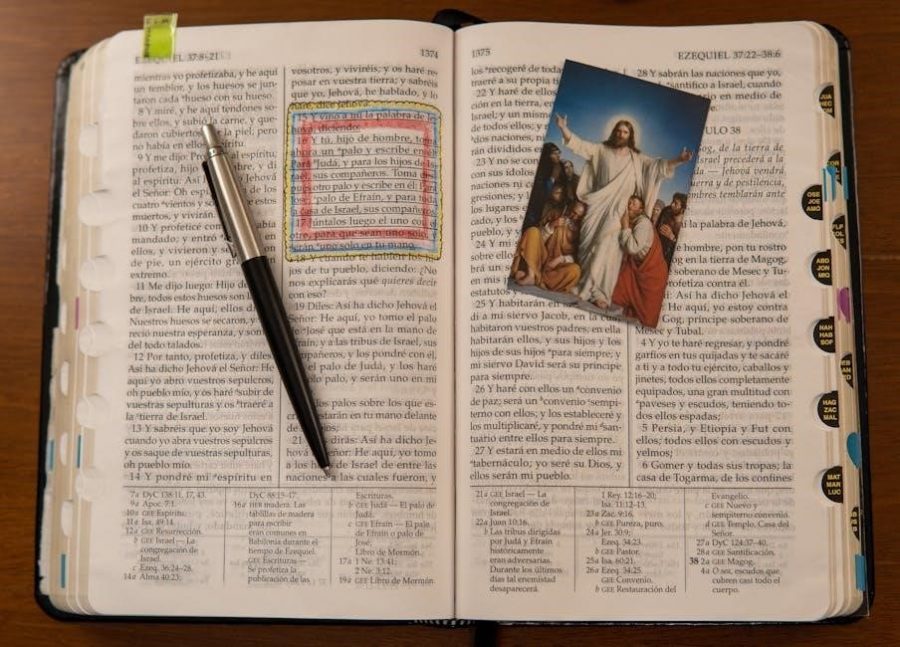 EZEQUIEL 37:8–21
1374
mientras yo profetizaba, y he aquí
un temblor, y los huesos se jun-
taron cada ᵃhueso con su hueso.
8 Y miré, y he aquí tendones so-
bre ellos, y subió la carne, y que-
daron cubiertos de la piel; pero
no había en ellos espíritu.
9 Y me dijo: Profetiza al espíritu;
profetiza, hijo
al espíritu: Así
el Señor: Oh espí
cuatro ᵃvientos y so estos
muertos, y vivirán.
10 Y profeticé co
mandado; y entró en
ellos, y vivieron y
de pie, un ejército gra
extremo.
11 Me dijo luego: Hijo de
bre, todos estos huesos son la
de Israel. He aquí, ellos d
Nuestros huesos se secaron, y
reció nuestra esperanza, y so
del todo talados.
12 Por tanto, profetiza, y diles
Así ha dicho Jehová el Señor: He
aquí yo abro vuestros sepulcros,
oh pueblo mío, y os haré ᵃsubir de
vuestras sepulturas y os ᵇtraeré a
la ᶜtierra de Israel.
13 Y sabréis que yo soy Jehová
cuando yo abra vuestros sepulcros
y os saque de vuestras sepulturas,
oh pueblo mío.
14 Y pondré mi ᵃespíritu en
vosotros, y viviréis, y os haré re-
posar en vuestra tierra; y sabréis
que yo, Jehová, he hablado, y lo
haré, dice Jehová.
15 Y vino a mí la palabra de Je-
hová, diciendo:
16 Y tú, hijo de hombre, toma
ahora un ᵃpalo y escribe en él:
Para ᵇJudá, y para los hijos de Is-
rael, sus compañeros. Toma des-
pués otro palo y escribe en él: Para
José, ᶜpalo de Efraín, y para toda
la casa de Israel, sus compañeros.
17 Júntalos luego el uno con el
otro, para que sean uno solo, y
serán ᵃuno solo en tu mano.
18 Y cuando te hablen los hi-
jos de tu pueblo, diciendo: ¿No
nos explicarás qué quieres decir
con eso?
19 Diles: Así ha dicho Jehová el
Señor: He aquí, yo tomo el palo
de ᵃJosé que está en la mano de
Efraín, y a las tribus de Israel, sus
compañeros, y los pondré con él,
el palo de Judá, y los haré
palo, y serán uno en mi
dos palos sobre los que es-
estarán en tu mano delante
de
21 dirás: Así ha dicho Je-
hová el Señor: He aquí, yo tomo
a los hijos de Israel de entre las
naciones a las cuales fueron, y
7a DyC 138:11, 17, 43.
9a Apoc. 7:1.
10a GEE Espíritu.
11a Isa. 49:14.
12a GEE Resurrección.
b GEE Israel — La
congregación de
Israel.
c Ezeq. 36:24–28.
14a Alma 40:23;
DyC 88:15–17.
16a HEB madera. Las
tablillas de madera
para escribir
eran comunes en
Babilonia durante el
tiempo de Ezequiel.
GEE Escrituras —
Se profetiza la
publicación de las
Escrituras.
b GEE Judá — El palo de
Judá.
c GEE Efraín — El palo
de Efraín o palo de
José;
Libro de Mormón.
17a 1 Ne. 13:41;
2 Ne. 3:12.
19a GEE Libro de Mormón.
1375
EZEQUIEL 37:22–38:6
los ᵃrecogeré de toda
traeré a su propia ti
22 Y haré de ellos
ción en la tierra, e
Israel; y un mism
de todos ellos; y
dos naciones, ni
rán divididos e
23 Y no se con
con sus ídolos
naciones ni c
gresiones; y l
los lugares
cado, y los ᵇ
pueblo, y
24 Y mi
bre ell
brá un s
en mis
estatutos y
25 Y habitarán en
di a mi siervo Jacob, en la cual
habitaron vuestros padres; en ella
habitarán ellos, y sus hijos y los
hijos de sus hijos ᵃpara siempre; y
mi siervo David será su príncipe
para siempre.
26 Y haré con ellos un ᵃconvenio
de paz; será un ᵇconvenio ᶜsempi-
terno con ellos; y los estableceré y
los multiplicaré, y pondré mi ᵈsan-
tuario entre ellos para siempre.
27 Y estará en medio de ellos mi
ᵃtabernáculo; yo seré su Dios, y
ellos serán mi pueblo.
28 Y sabrán las naciones que yo,
ᵃsantifico a Israel, cuando
en medio de
ULO 38
Gog, de la tierra de
Israel precederá a la
da — Jehová vendrá
uerra y de pestilencia,
ombres temblarán ante
la palabra de Jehová,
hombre, pon tu rostro
en la tierra de Magog,
soberano de Mesec y Tu-
profetiza contra él.
Así ha dicho Jehová el
Señor: He aquí, yo estoy contra
Gog, príncipe soberano de
Mesec y Tubal.
4 Y yo te haré regresar, y pondré
garfios en tus quijadas y te sacaré
a ti y a todo tu ejército, caballos y
jinetes, todos ellos completamente
equipados, una gran multitud con
ᵃpaveses y escudos, teniendo to-
dos ellos espadas;
5 Persia, y Etiopía y Fut con
ellos; todos ellos con escudos y
yelmos;
6 Gomer y todas sus tropas; la
casa de Togarma, de los confines
21a GEE Israel — La
congregación de
Israel.
22a Juan 10:16.
b Las tribus dirigidas
por Judá y Efraín
históricamente
eran adversarias.
Durante los últimos
días tal enemistad
desaparecerá.
1 Rey. 12:16–20;
Isa. 11:12–13.
23a Zac. 9:16.
b GEE Pureza, puro.
24a Jer. 30:9;
Ezeq. 34:23.
b GEE Pastor.
25a Isa. 60:21.
26a Ezeq. 34:25.
GEE Convenio.
b GEE Restauración del
Evangelio.
c GEE Nuevo y
sempiterno convenio.
d GEE Templo, Casa del
Señor.
27a DyC 124:37–40.
28a GEE Santificación.
38 2a GEE Magog.
4a O sea, escudos que
cubren casi todo el
cuerpo.
OSE
JOE
AMÓ
ABD
JON
MIQ
NAH
HAB
SOF
HAG
ZAC
MAL
MAT
MAR
LUC